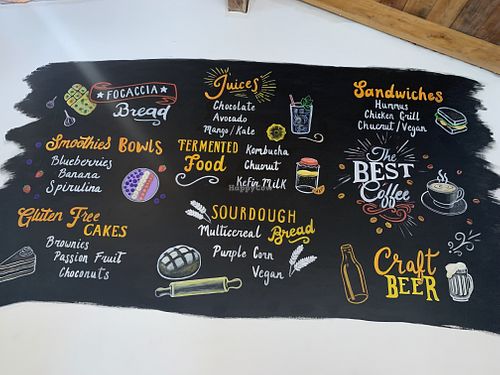 FOCACCIA
Bread
Juices
Chocolate
Avocado
Mango/Kale
Sandwiches
Hummus
Chicken Grill
Chucrut/Vegan
Smoothies Bowls
Blueberries
Banana
Spirulina
FERMENTED
Food
Kombucha
Chucrut
Kefir Milk
The
BEST
Coffee
Gluten Free
CAKES
Brownies
Passion Fruit
Choconuts
SOURDOUGH
Multicereal Bread
Purple Corn
Vegan
Craft
BEER
HappyCow